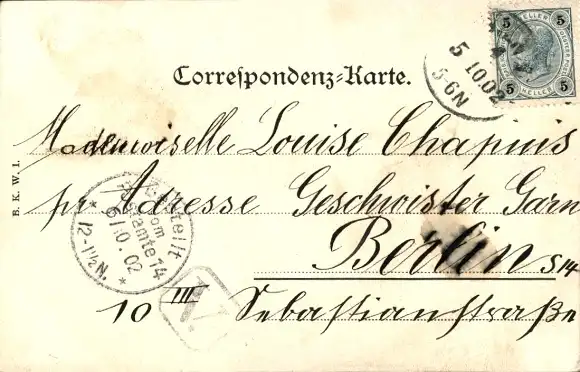 5 HELLER 5
5 HELLER 5
5 10 02
5-6N
Correspondenz-Karte.
Mademoiselle Louise Chapuis
pr Adresse Geschwister Garn
Berlin S14
10 III Sebastianstraße
B. K. W. I.
Bestellt
vom
Postamte 14
6/10.02
12-1½N.